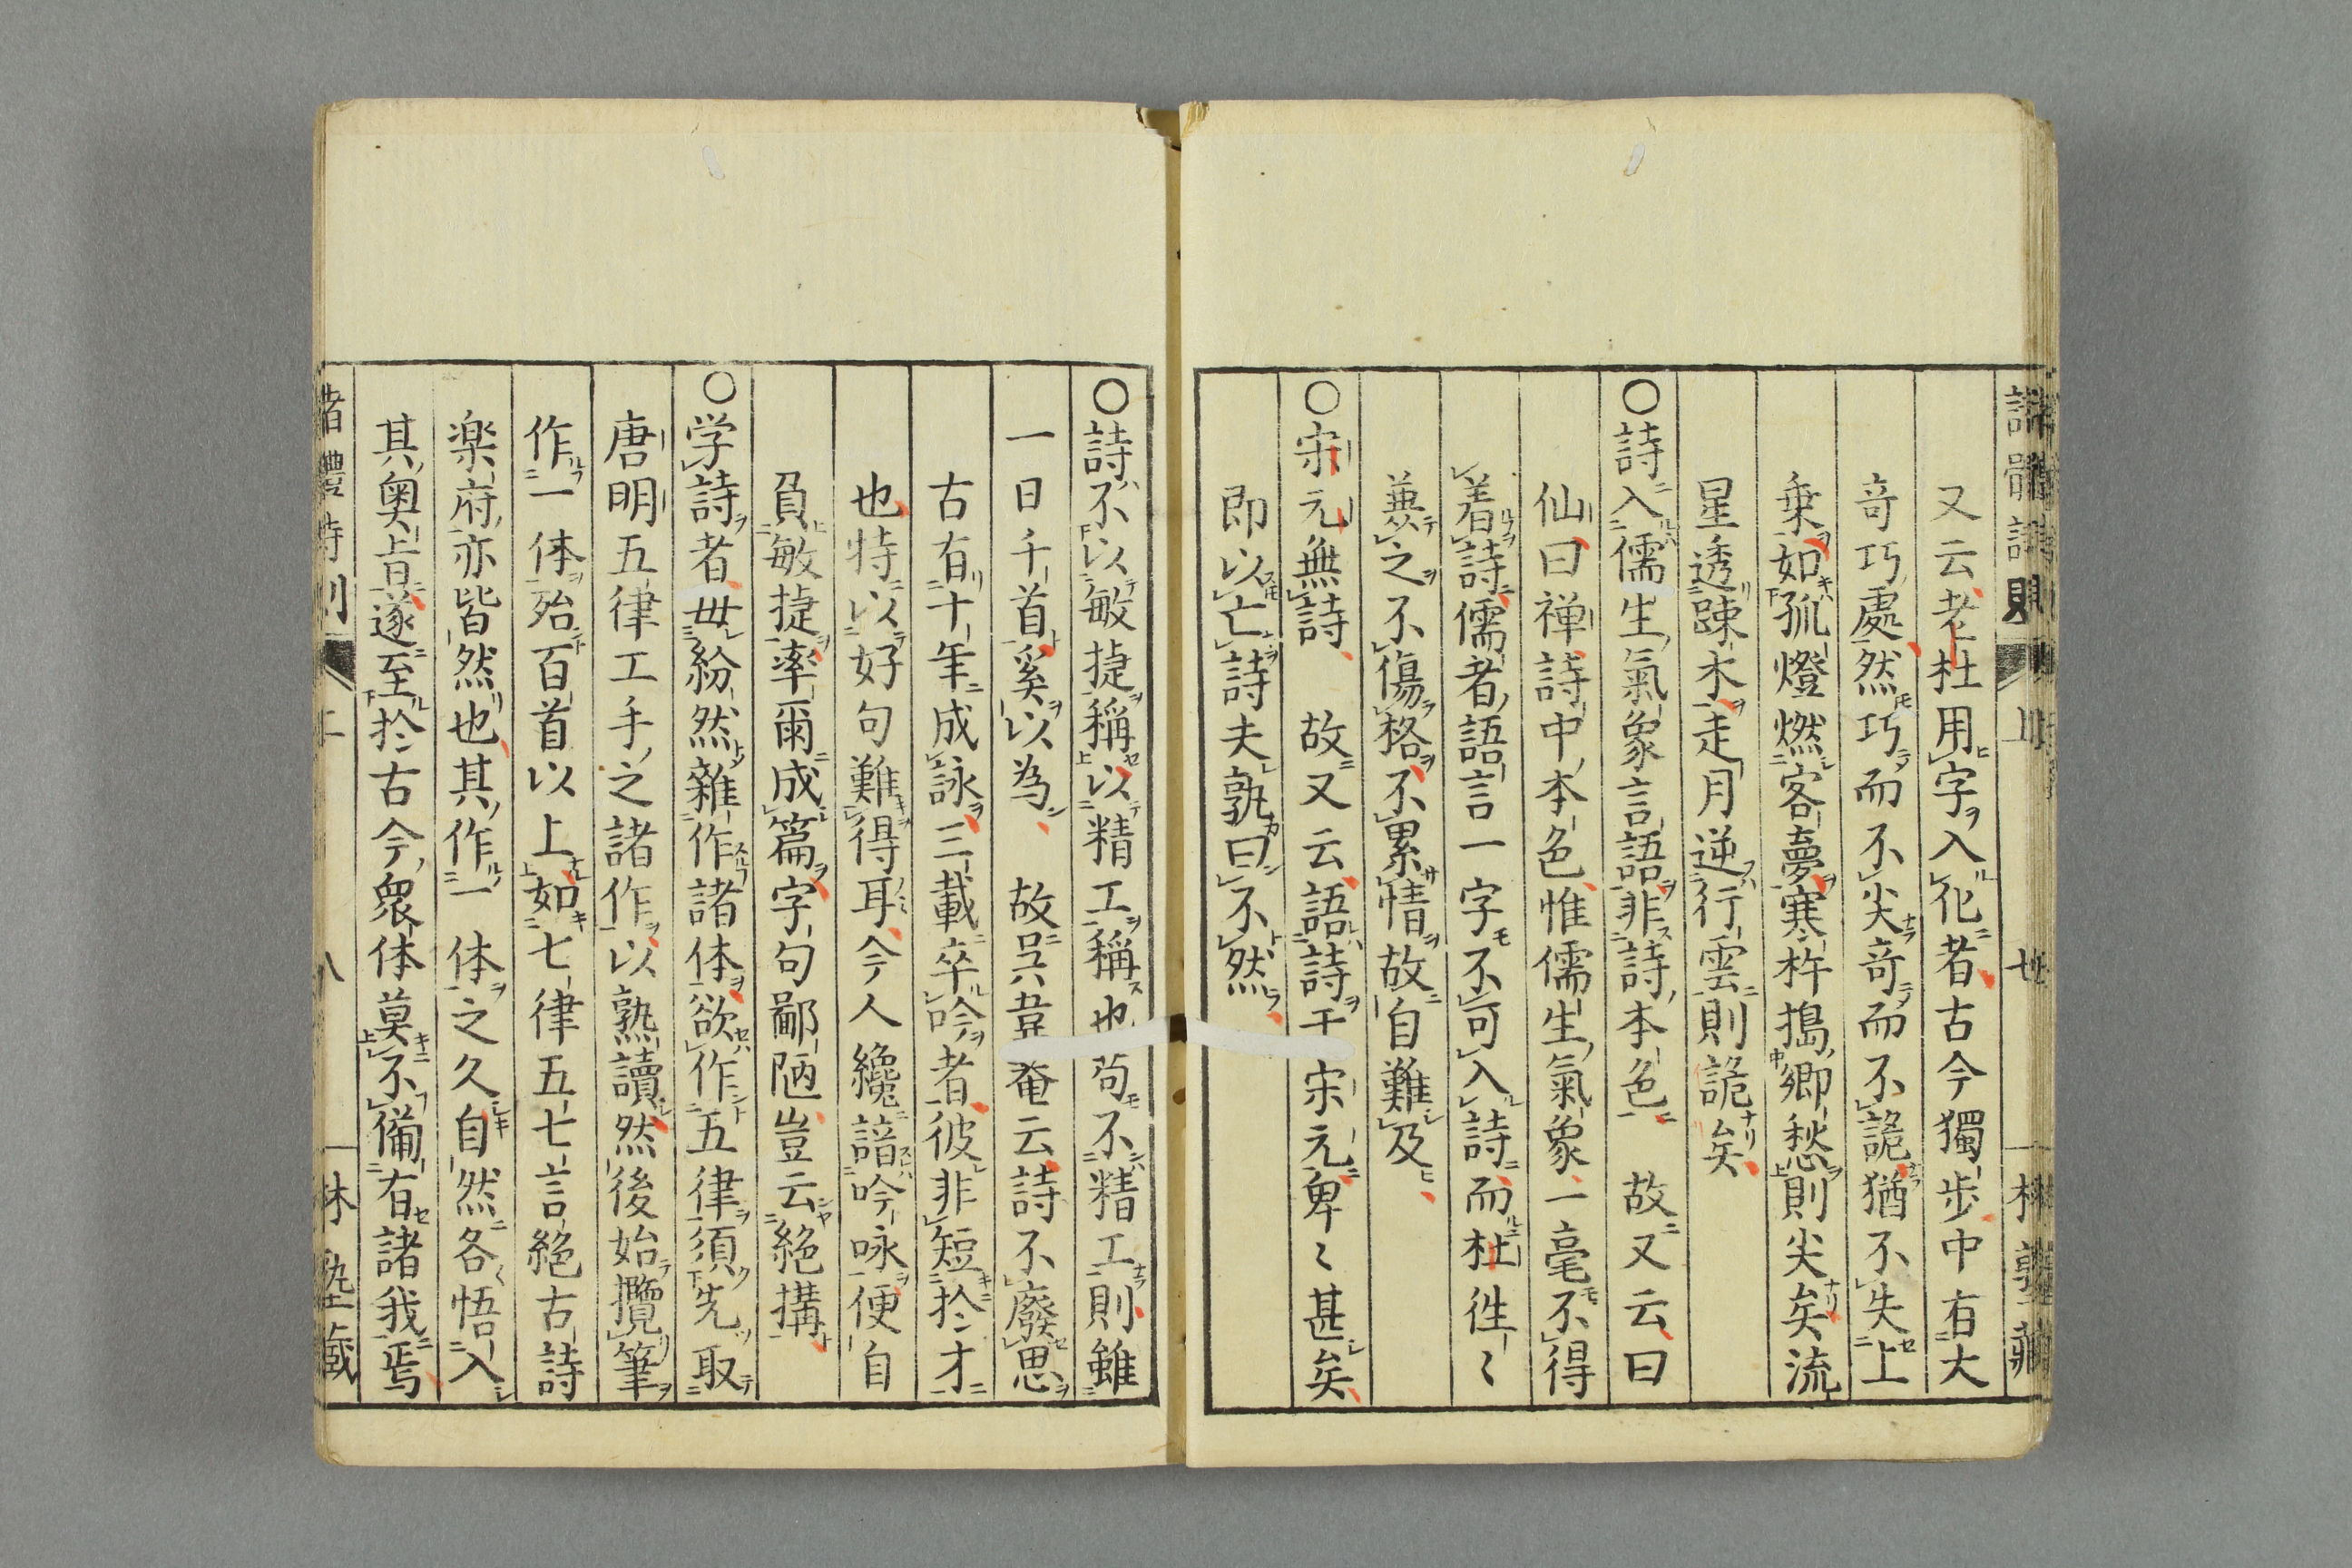 又云老杜用字入化者古今獨歩中有大
竒巧處然巧而不尖竒而不詭猶不失上
乗如孤燈燃客夢寒杵搗郷愁則尖矣流
星透踈木走月逆行雲則詭矣
○詩入儒生氣象言語非詩本色　故又云曰
仙曰禅詩中本色惟儒生氣象一毫不得
着詩儒者語言一字不可入詩而杜徃〻
兼之不傷格不累情故自難及
○宋元無詩　故又云語詩于宋元卑〻甚矣
即以亡詩夫孰曰不然
○詩不以敏捷稱以精工稱也茍不精工則雖
一日千首奚以為　故呉韋菴云詩不廢思
古有十年成詠三載卒吟者彼非短於才
也特以好句難得耳今人纔諳吟咏便自
負敏捷率爾成篇字句鄙陋豈云絶搆
○学詩者毋紛然雜作諸体欲作五律須先取
唐明五律工手之諸作以熟讀然後始攬筆
作一体殆百首以上如七律五七言絶古詩
楽府亦皆然也其作一体之久自然各悟入
其奥旨遂至於古今衆体莫不備有諸我焉